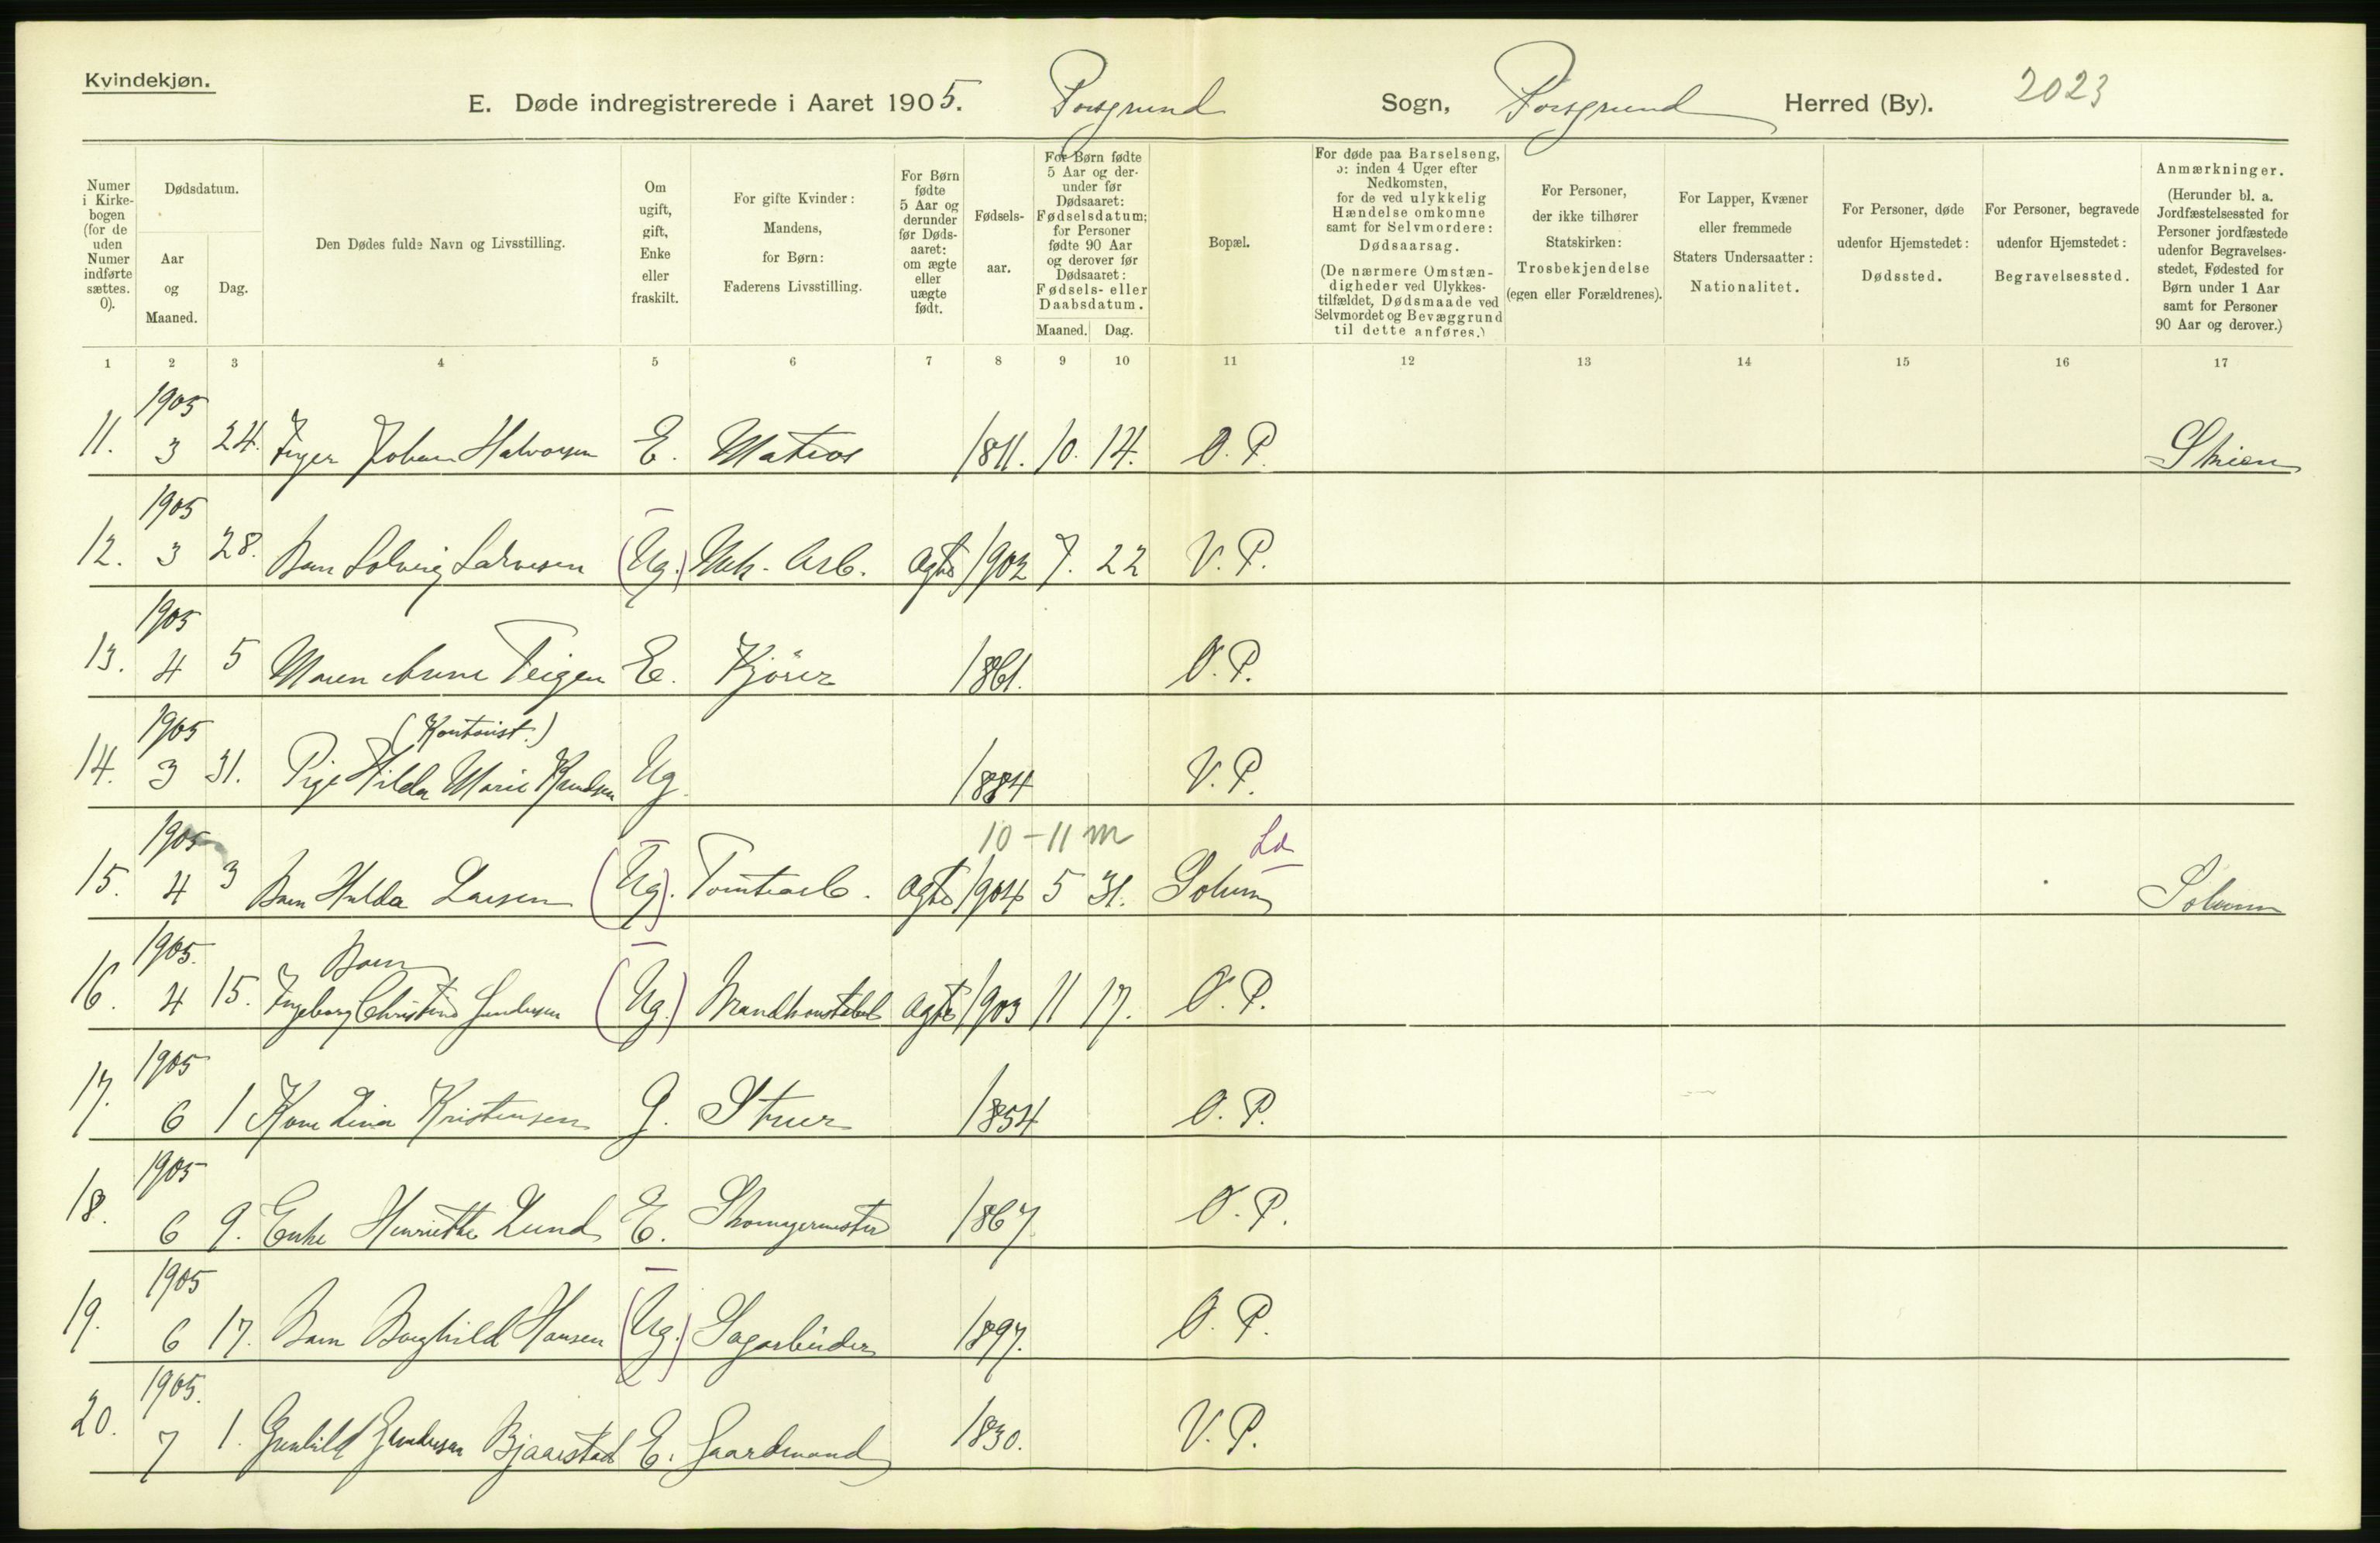 Kvindekjøn.
E. Døde indregistrerede i Aaret 1905. Porsgrund Sogn, Porsgrund Herred (By). 2023
Numer i Kirkebogen (for de uden Numer indførte sættes. 0).
Dødsdatum.
Aar og Maaned.
Dag.
Den Dødes fulde Navn og Livsstilling.
Om ugift, gift, Enke eller fraskilt.
For gifte Kvinder: Mandens, for Børn: Faderens Livsstilling.
For Børn fødte 5 Aar og derunder før Døds-aaret: om ægte eller uægte født.
Fødsels-aar.
For Børn fødte 5 Aar og der-under før Dødsaaret: Fødselsdatum; for Personer fødte 90 Aar og derover før Dødsaaret: Fødsels- eller Daabsdatum.
Maaned. Dag.
Bopæl.
For døde paa Barselseng, ɔ: inden 4 Uger efter Nedkomsten, for de ved ulykkelig Hændelse omkomne samt for Selvmordere: Dødsaarsag.
(De nærmere Omstæn-digheder ved Ulykkes-tilfældet, Dødsmaade ved Selvmordet og Bevæggrund til dette anføres.)
For Personer, der ikke tilhører Statskirken: Trosbekjendelse (egen eller Forældrenes).
For Lapper, Kvæner eller fremmede Staters Undersaatter: Nationalitet.
For Personer, døde udenfor Hjemstedet: Dødssted.
For Personer, begravede udenfor Hjemstedet: Begravelsessted.
Anmærkninger.
(Herunder bl. a. Jordfæstelsessted for Personer jordfæstede udenfor Begravelses-stedet, Fødested for Børn under 1 Aar samt for Personer 90 Aar og derover.)
1 2 3 4 5 6 7 8 9 10 11 12 13 14 15 16 17
1905
11. 3 24. Inger Halvorsen E. Matros 1811. 10. 14. O. P. Skien
1905
12. 3 28. Barn Solveig Larsen (Ug.) Mek. Arb. Ægte 1902 7. 22 V. P.
1905
13. 4 5 Maren Anne Teigen E. Kjører 1861. O. P.
1905 (Kontorist.)
14. 3 31. Pige Hilda Marie Knudsen Ug. 1884 V. P.
1905 10-11 m Ld
15. 4 3 Barn Hulda Larsen (Ug). Tomtearb. Ægte 1904 5 31. Solum Solum
1905. Barn
16. 4 15. Ingeborg Christine Gundersen (Ug.) Brandkonstabel Ægte 1903 11 17. O. P.
1905
17. 6 1 Kone Lina Kristensen G. Struer 1854 O. P.
1905
18. 6 9. Enke Henriette Lund E. Skomagermester 1867 O. P.
1905
19. 6 17. Barn Borghild Hansen (Ug.) Sagarbeider 1897. O. P.
1905.
20. 7 1. Gunhild Gundersen Bjaarstad E. Gaardmand 1830. V. P.